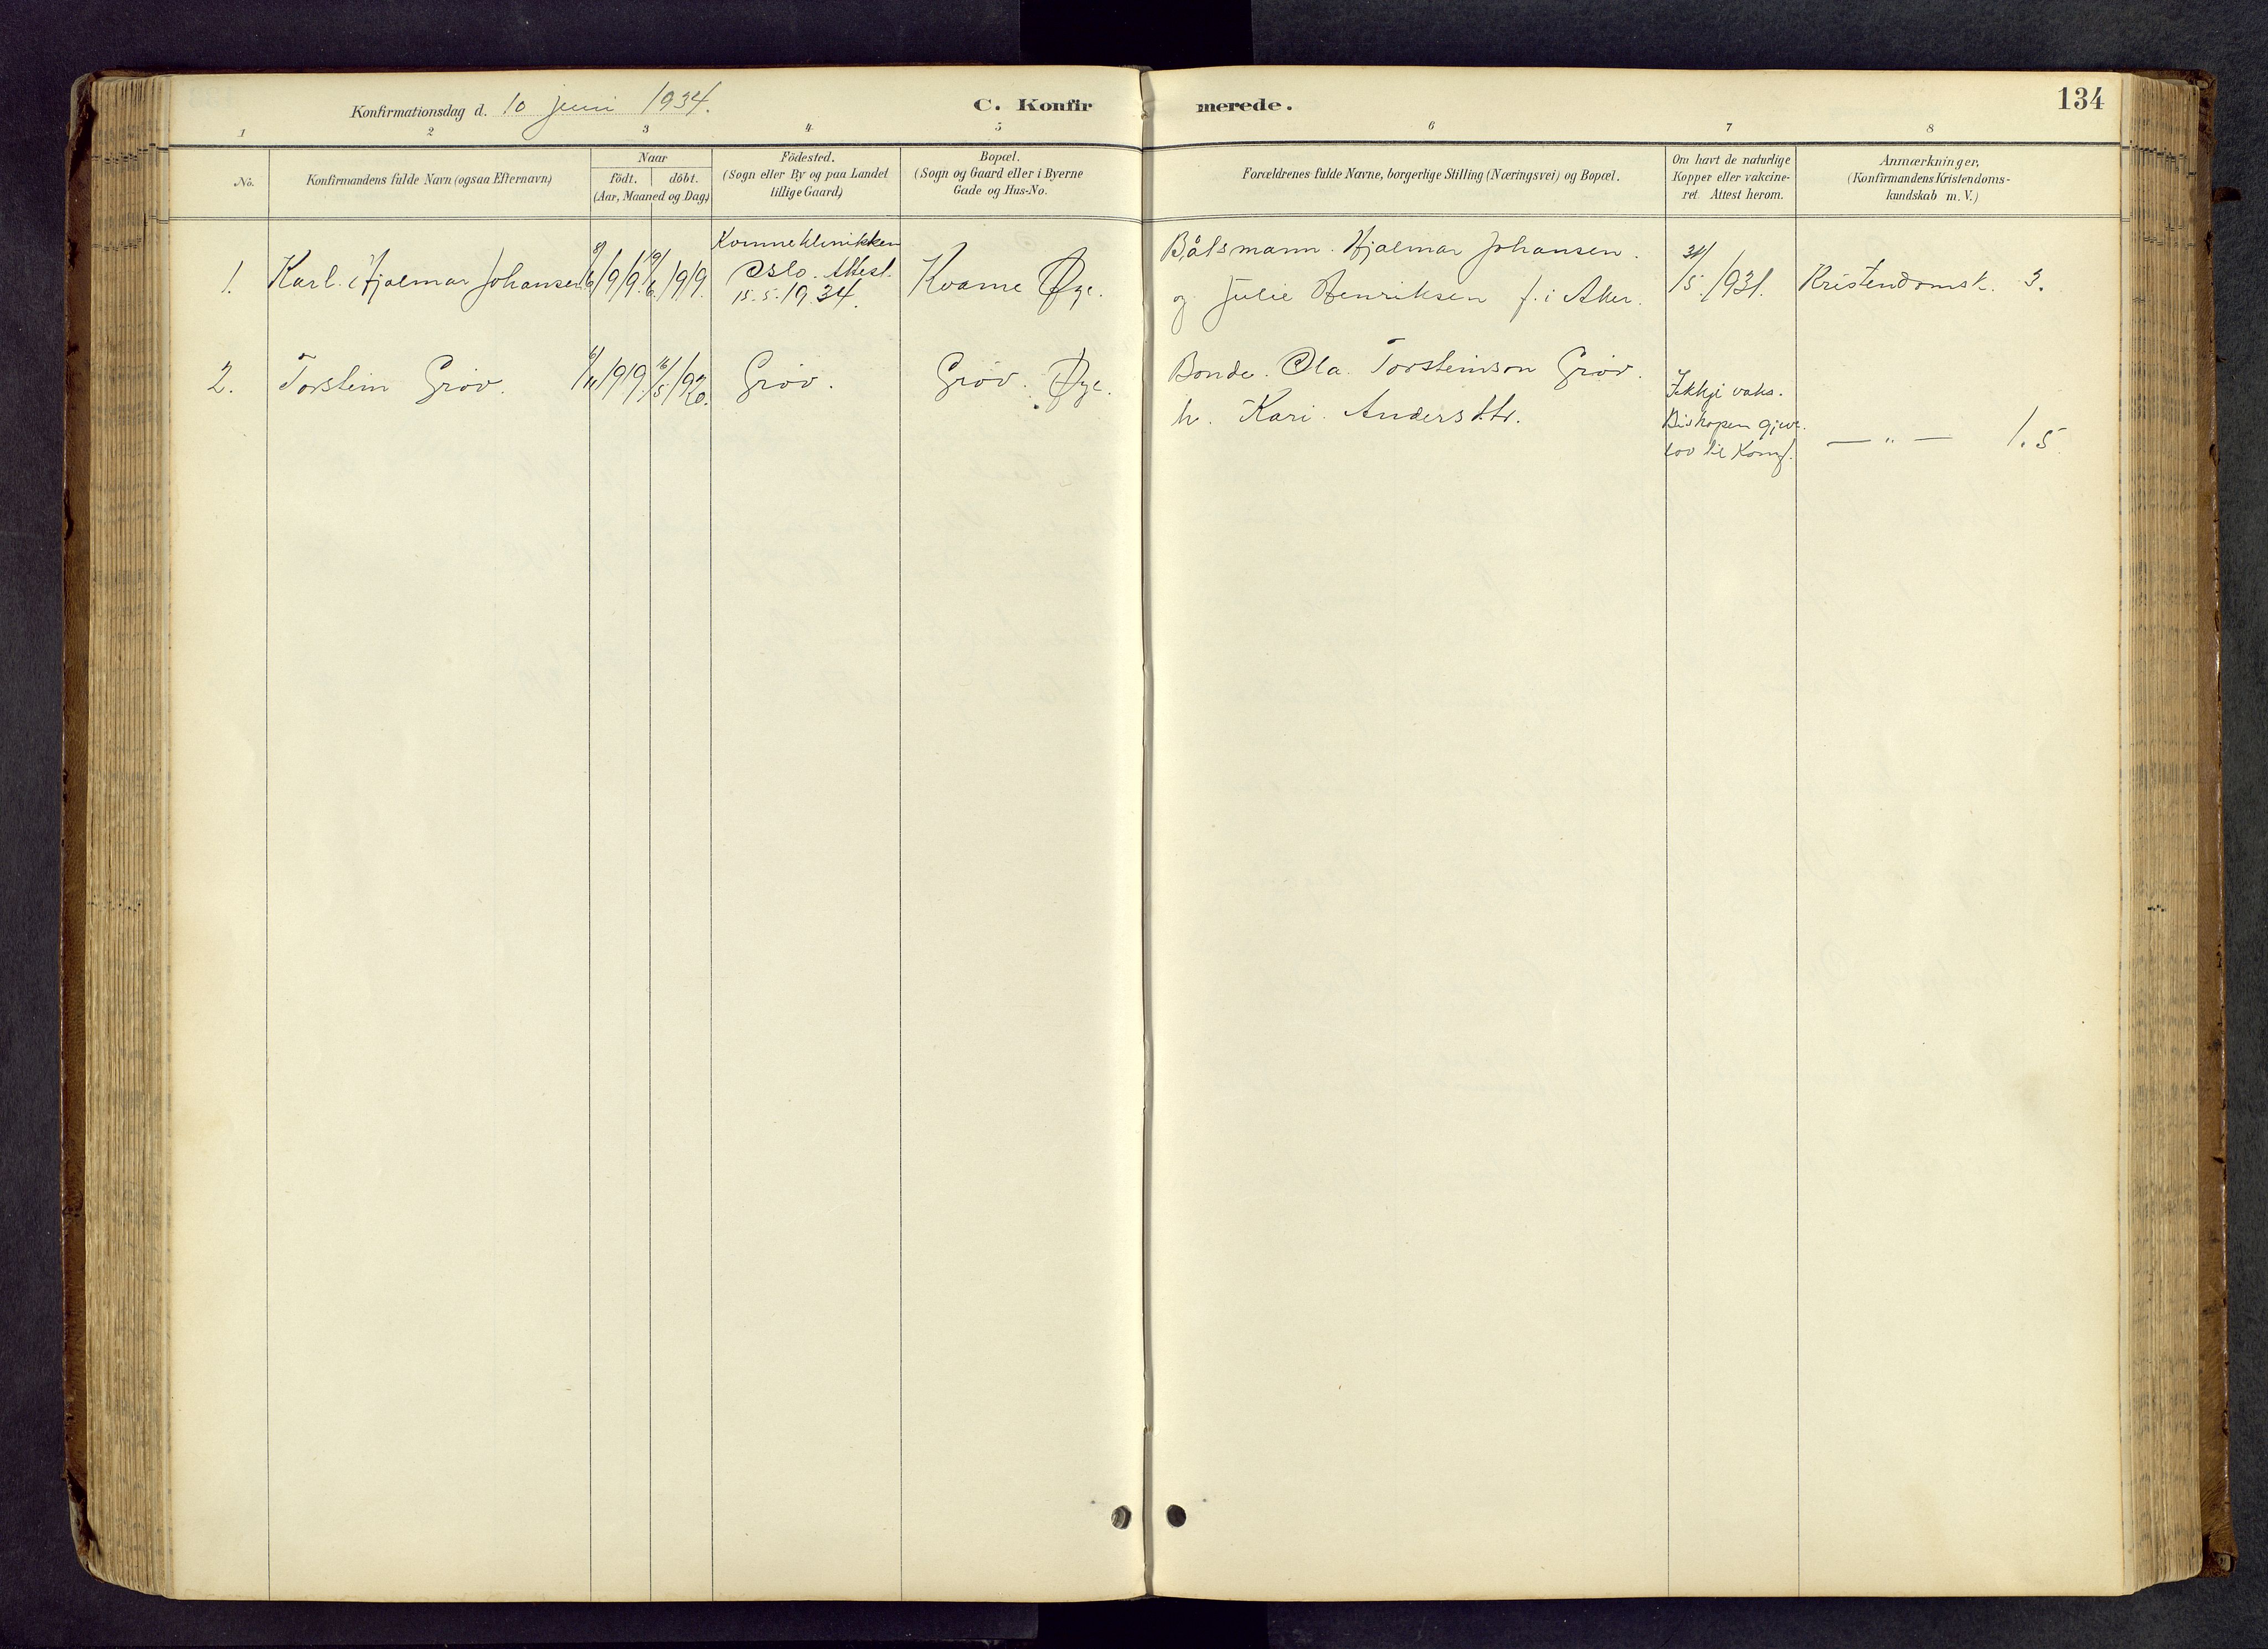 Konfirmationsdag d. 10 juni 1934.
C. Konfirmerede.
134
1 2 3 4 5 6 7 8
No.
Konfirmandens fulde Navn (ogsaa Efternavn)
Naar
födt. döbt.
(Aar, Maaned og Dag)
Födested.
(Sogn eller By og paa Landet
tillige Gaard)
Bopæl.
(Sogn og Gaard eller i Byerne
Gade og Hus-No.
Forældrenes fulde Navne, borgerlige Stilling (Næringsvei) og Bopæl.
Om havt de naturlige
Kopper eller vakcine-
ret. Attest herom.
Anmærkninger,
(Konfirmandens Kristendoms-
kundskab m. V.)
1. Karl Hjalmar Johansen 8/6 1919. /6 1919.
Kvinneklinikken
Oslo. Attest.
15.5.1934.
Kvame Øye.
Båtsmann. Hjalmar Johansen.
og Julie Henriksen f. i Aker.
31/5 1931.
Kristendomsk. 3.
2. Torstein Gröv. 6/11 1919. 16/5 1920.
Gröv.
Gröv. Øye.
Bonde. Ola Torsteinson Gröv.
h. Kari Andersdtr.
Ikkje vaks.
Biskopen gjeve
lov til Konf.
— " — 1.5